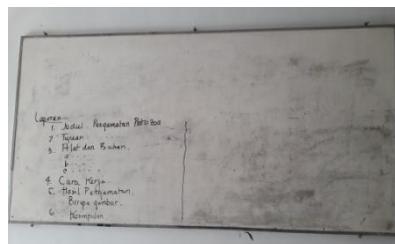 Laporan
1. Judul : Pengamatan Protozoa
2. Tujuan
3. Alat dan Bahan.
a
b
c
4. Cara Kerja
5. Hasil Pengamatan.
Berupa gambar.
6. Kesimpulan